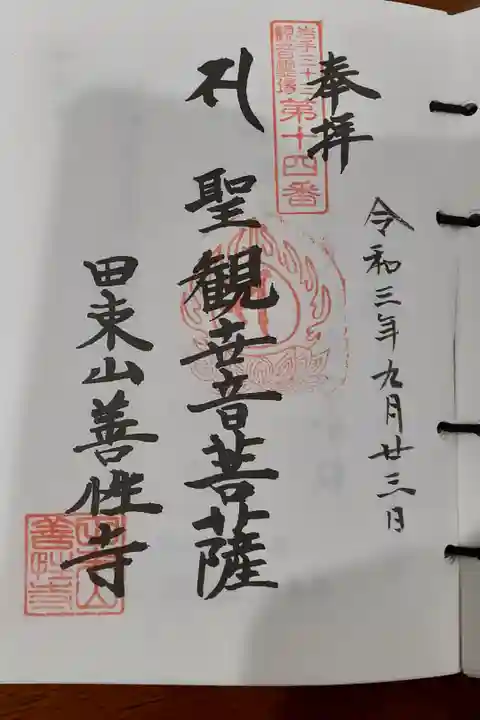 奉拝
令和三年九月廿三日
岩手三十三
観音霊場
第十四番
聖観世音菩薩
田束山善性寺
田束山
善性寺